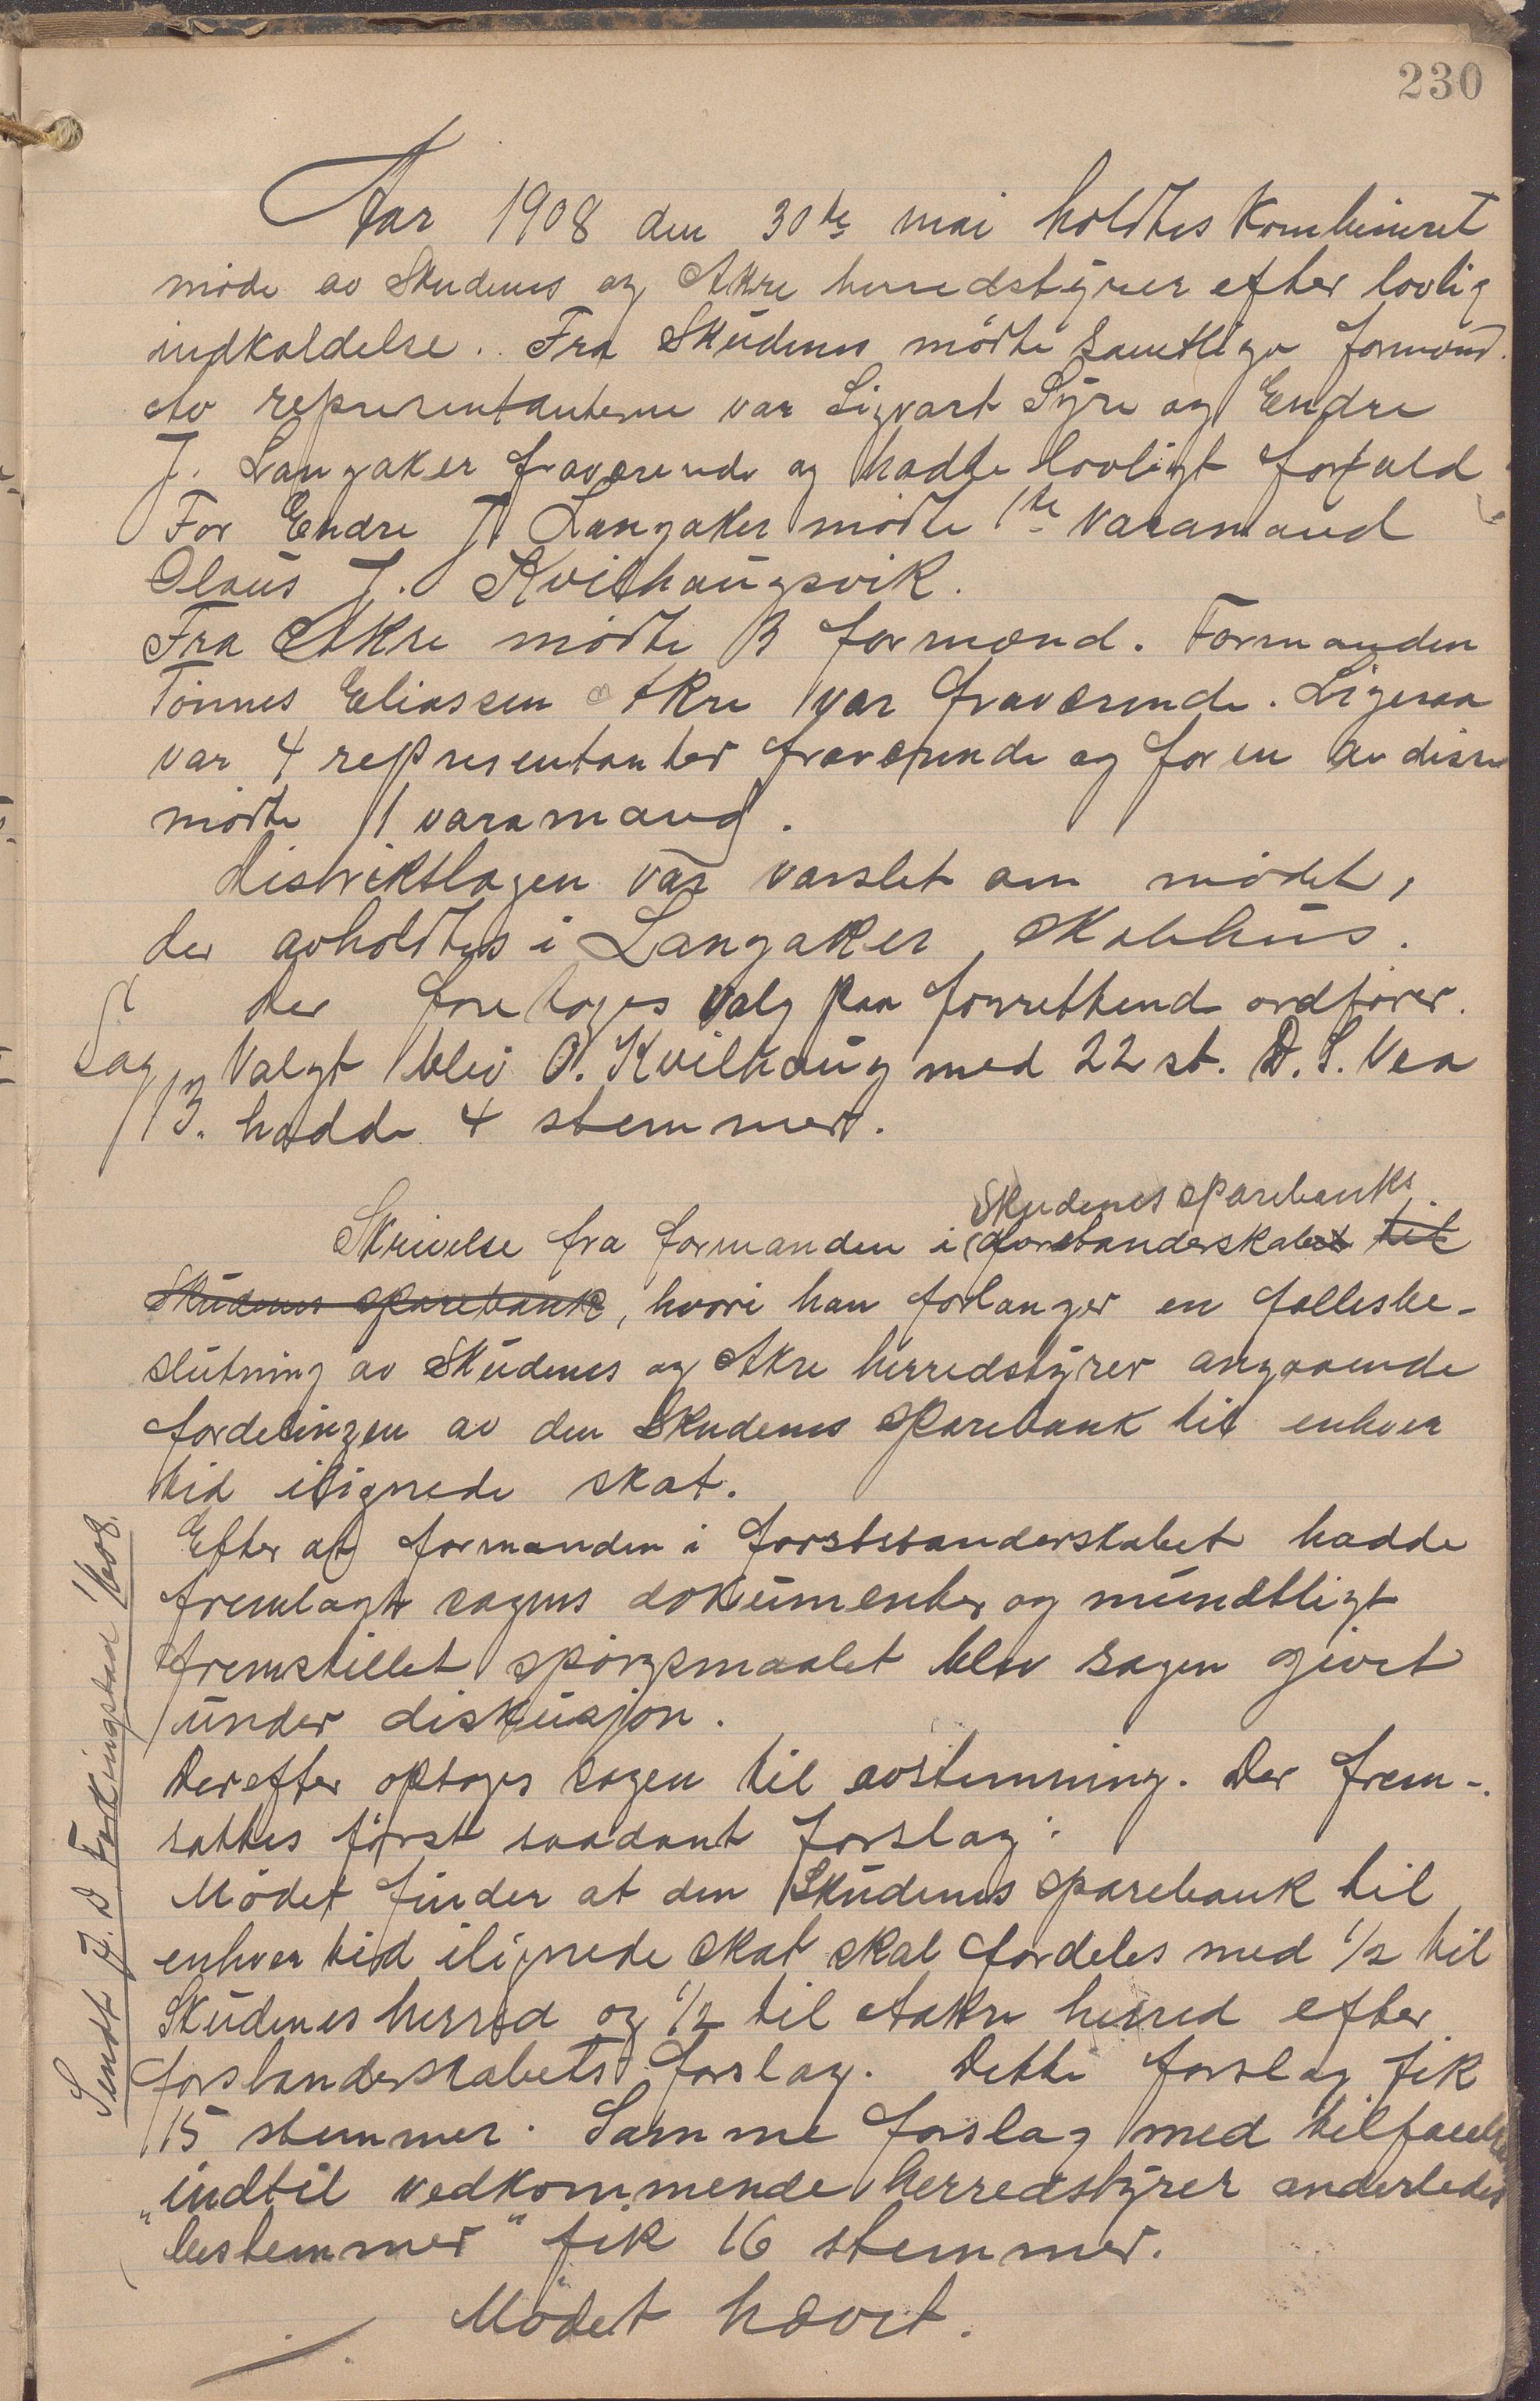 230
Aar 1908 den 30te mai holdtes kombineret
møde av Skudenes og Akre herredstyrer efter lovlig
indkaldelse. Fra Skudenes mødte samtlige formænd.
Av representanterne var Sigvart Syre og Endre
J. Langaker fraværende og hadde lovligt forfald
For Endre J. Langaker mødte 1te varamand
Olaus J. Kvilhaugsvik.
Fra Akre mødte 3 formænd. Formanden
Tönnes Eliassen Akre var fraværende. Ligesaa
var 4 representanter fraværende og for en av disse
mødte 1 varamand.
Distriktslagen var varslet om mødet,
der avholdtes i Langaker skolehus.
Der foretoges valg paa forrettende ordfører.
Sag Valgt blev O. Kvilhaug med 22 st. D. S. Vea
13. hadde 4 stemmer.
Skudenes sparebanks
Skrivelse fra formanden i forstanderskabet til
Skudenes sparebank, hvori han forlanger en fællesbe-
slutning av Skudenes og Akre herredstyrer angaaende
fordelingen av den Skudenes sparebank til enhver
tid ilignede skat.
Efter at formanden i forstanderskabet hadde
fremlagt sagens dokumenter og mundtligt
fremstillet spørgsmaalet blev sagen givet
under diskusjon.
Derefter optoges sagen til avstemning. Der frem-
sattes først saadant forslag:
Mødet finder at den Skudenes sparebank til
enhver tid ilignede skat skal fordeles med 1/2 til
Skudenes herred og 1/2 til Aakre herred efter
forstanderskabets forslag. Dette forslag fik
15 stemmer. Samme forslag med tilføielse
"indtil vedkommende herredstyrer anderledes
bestemmer" fik 16 stemmer.
Mødet hævet.
Sendt J. D. Ferkingstad 1/6 08.